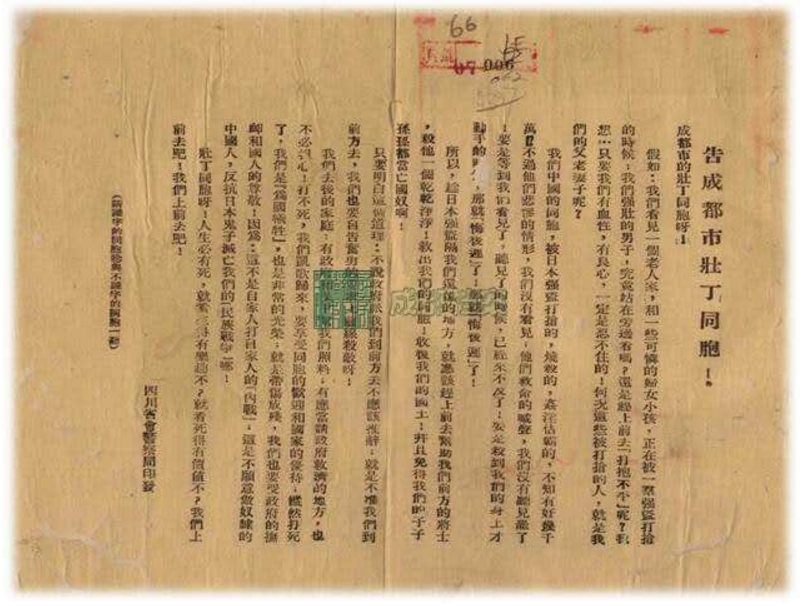 66
07 006
告成都市壯丁同胞！
成都市的壯丁同胞呀！
假如：我們看見一個老人家，和一些可憐的婦女小孩，正在被一羣强盜打搶
的時候，我們强壯的男子，究竟站在旁邊看嗎？還是趕上前去「打抱不平」呢？我
想：只要我們有血性，有良心，一定是忍不住的！何况這些被打搶的人，就是我
們的父老妻子呢？
我們中國的同胞，被日本强盜打搶的，燒殺的，姦淫佔霸的，不知有好幾千
萬！不過他們悲慘的情形，我們沒有看見；他們救命的喊聲，我們沒有聽見罷了
！要是等到我們看見了，聽見了的時候，已經來不及了！要是殺到我們的身上才
動手的時候，那就「悔後遲」了！那就「悔後遲」了！
所以，趁日本强盜隔我們還遠的地方，就應該趕上前去幫助我們前方的將士
，殺他一個乾乾淨淨！救出我們的同胞！收復我們的國土！并且免得我們的子子
孫孫都當亡國奴啊！
只要明白這個道理：不說政府派我們到前方去不應該推辭；就是不准我們到
前方去，我們也要自告奮勇的 殺敵呀！
我們去後的家庭，有政府和 我們照料；有應當請政府救濟的地方，也
不必 心！打不死，我們凱歌歸來，要享受同胞的歡迎和國家的優待；縱然打死
了，我們是「爲國犧牲」，也是非常的光榮；就是帶傷成殘，我們也要受政府的撫
卹和國人的尊敬！因爲：這不是自家人打自家人的「內戰」；這是不願意做奴隸的
中國人，反抗日本鬼子滅亡我們的「民族戰爭」哪！
壯丁同胞呀！人生必有死，就看 得有樂趣不？就看死得有價值不？我們上
前去罷！我們上前去罷！
四川省會警察局印發
（請識字的同胞 與不識字的同胞一聽）
成都